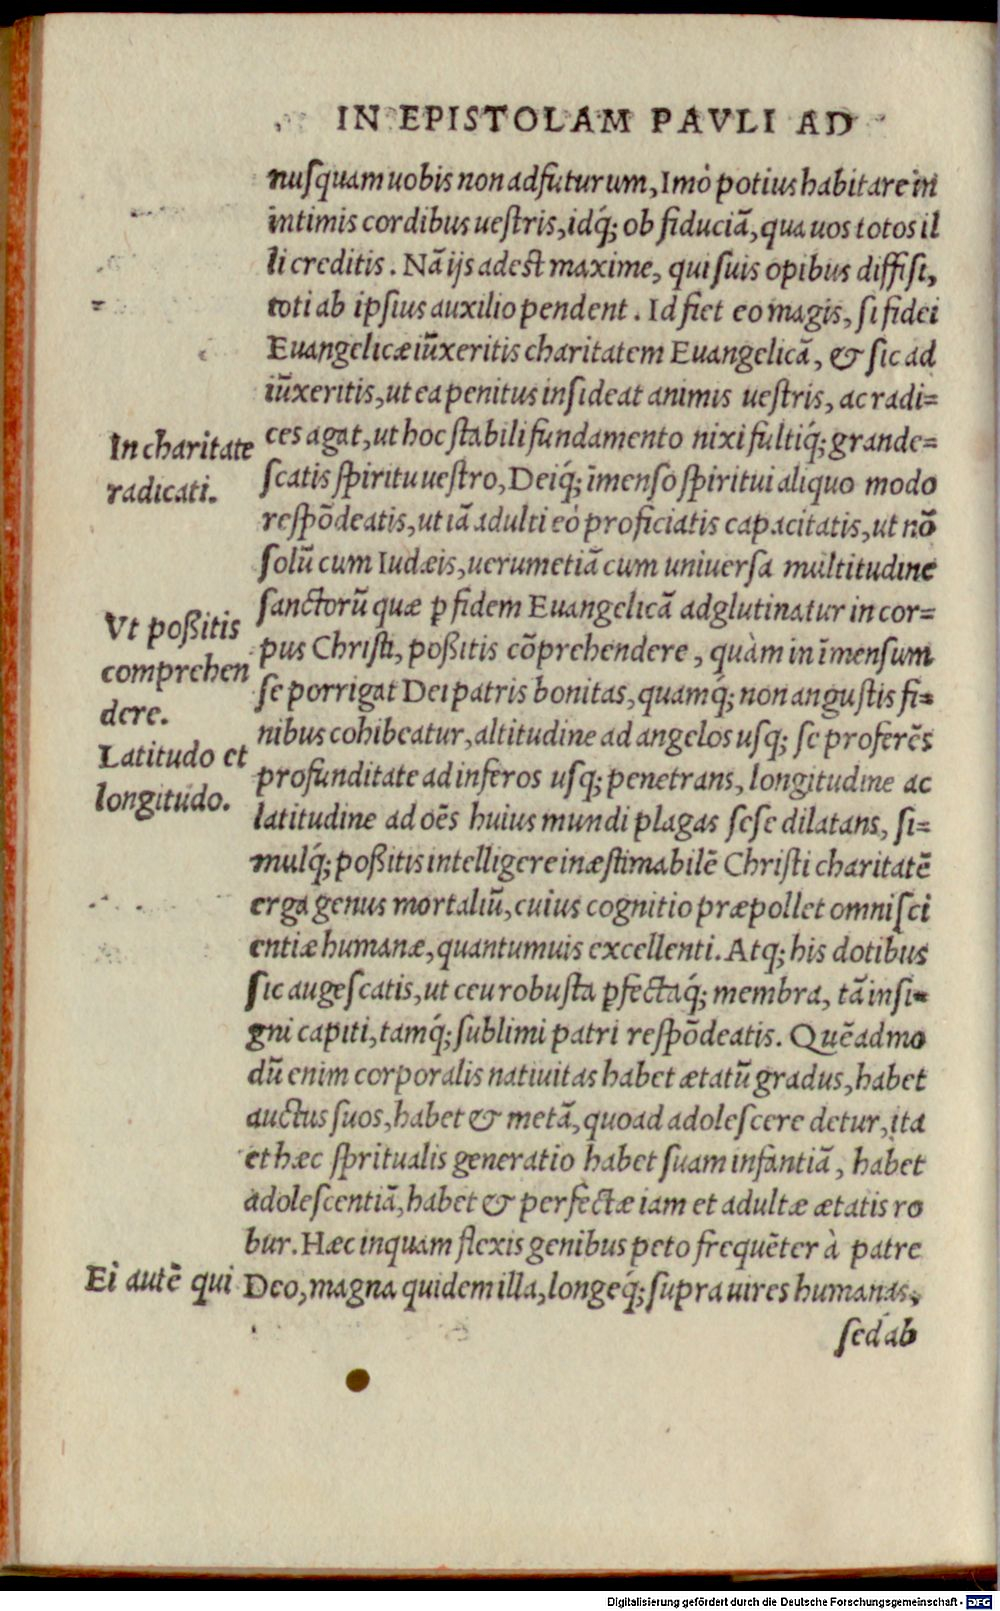 IN EPISTOLAM PAVLI AD
nusquam uobis non adfuturum, Imò potius habitare in
intimis cordibus uestris, idq́; ob fiduciā, qua uos totos il
li creditis. Nā ijs adest maxime, qui suis opibus diffisi,
toti ab ipsius auxilio pendent. Id fiet eo magis, si fidei
Euangelicæ iūxeritis charitatem Euangelicā, & sic ad
iūxeritis, ut ea penitus insideat animis uestris, ac radi=
In charitate
radicati.
ces agat, ut hoc stabili fundamento nixi fultiq́; grande=
scatis spiritu uestro, Deiq́; īmenso spiritui aliquo modo
respōdeatis, ut iā adulti eò proficiatis capacitatis, ut nō
solū cum Iudæis, uerumetiā cum uniuersa multitudine
sanctorū quæ ꝑ fidem Euangelicā adglutinatur in cor=
Vt poßitis
comprehen
dere.
pus Christi, poßitis cōprehendere, quàm in īmensum
se porrigat Dei patris bonitas, quamq́; non angustis fi=
nibus cohibeatur, altitudine ad angelos usq; se proferēs
Latitudo et
longitudo.
profunditate ad inferos usq; penetrans, longitudine ac
latitudine ad oēs huius mundi plagas sese dilatans, si=
mulq́; poßitis intelligere inæstimabilē Christi charitatē
erga genus mortaliū, cuius cognitio præpollet omni sci
entiæ humanæ, quantumuis excellenti. Atq; his dotibus
sic augescatis, ut ceu robusta ꝑfectaq́; membra, tā insi=
gni capiti, tamq́; sublimi patri respōdeatis. Quēadmo
dū enim corporalis natiuitas habet ætatū gradus, habet
auctus suos, habet & metā, quoad adolescere detur, ita
et hæc spritualis generatio habet suam infantiā, habet
adolescentiā, habet & perfectæ iam et adultæ ætatis ro
bur. Hæc inquam flexis genibus peto frequēter à patre
Ei autē qui
Deo, magna quidem illa, longeq́; supra uires humanas,
sed ab
Digitalisierung gefördert durch die Deutsche Forschungsgemeinschaft - DFG